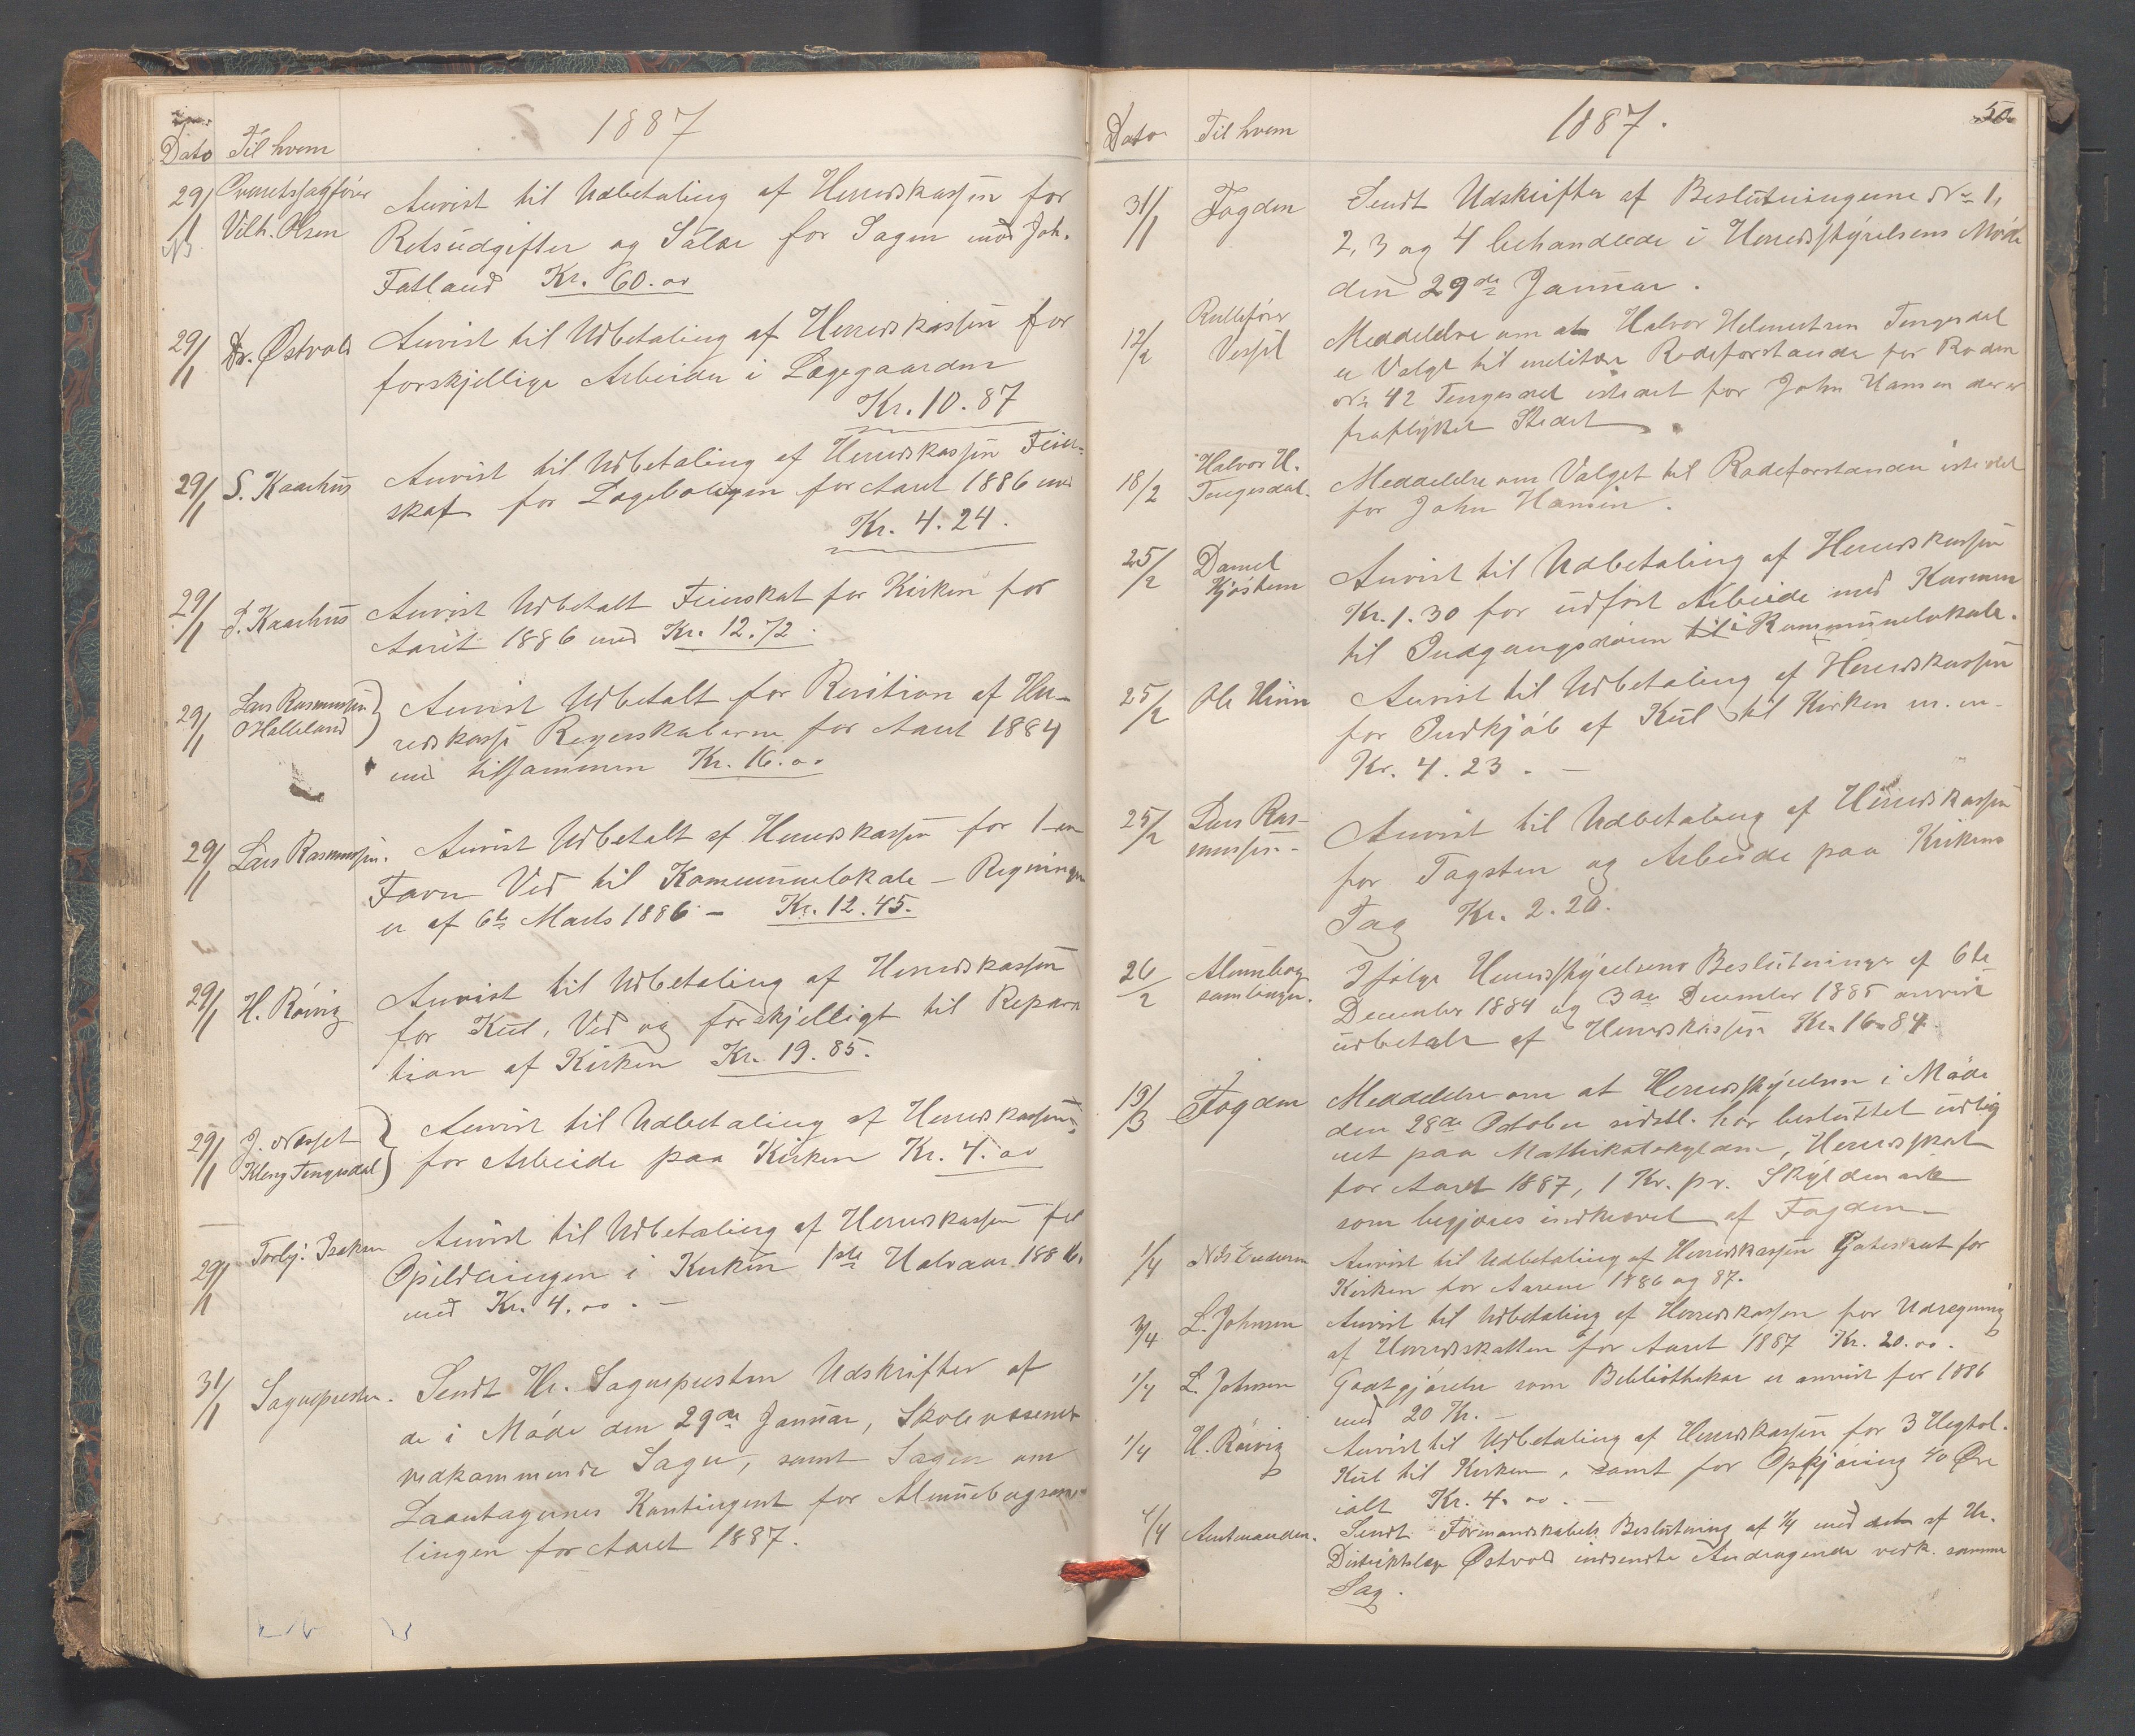 1887
Dato Til hvem
29/1 Overretssagfører Vilh. Olsen Anvist til Udbetaling af Herredskassen for
Retsudgifter og Salær for Sagen mod Joh.
Fatland Kr. 60.00
29/1 Dr. Østvold Anvist til Udbetaling af Herredskassen for
forskjellige Arbeider i Lægegaarden
Kr. 10.87
29/1 S. Kaarhus Anvist til Udbetaling af Herredskassen Feier-
skat for Lægeboligen for Aaret 1886 med
Kr. 4.24.
29/1 S. Kaarhus Anvist Udbetalt Feierskat for Kirken for
Aaret 1886 med Kr. 12.72.
29/1 Lars Rasmussen Halleland Anvist Udbetalt for Revition af Her-
redskasse Regnskaberne for Aaret 1884
med tilsammen Kr. 16.00
29/1 Lars Rasmussen. Anvist Udbetalt af Herredskassen for 1 en
Favn Ved til Kommunelokale – Regningen
er af 6te Marts 1886 – Kr. 12.45.
29/1 H. Røvig Anvist til Udbetaling af Herredskassen
for Kul, Ved og forskjelligt til Repara
tion af Kirken Kr. 19.85.
29/1 J. Næsset Kleng Tengesdal Anvist til Udbetaling af Herredskassen
for Arbeide paa Kirken Kr. 4.00
29/1 Torbj. Isaksen Anvist til Udbetaling af Herredskassen for
Opildningen i Kirken 1ste Halvaar 1886.
med Kr. 4.00. –
31/1 Sognepresten. Sendt Hr. Sognepresten Udskrifter af
de i Møde den 29de Januar, Skolevæsenet
vedkommende Sager, samt Sagen om
Laantagernes Kontingent for Almuebogsam-
lingen for Aaret 1887.
1887. 50
Dato Til hvem
31/1 Fogden Sendt Udskrifter af Beslutningerne No 1,
2, 3 og 4 behandlede i Herredsstyrelsens Møde
den 29de Januar.
12/2 Rullefører Meddelelse om at Halvor Helmertsen Tengesdal
er Valgt til militær Rodeforstander for Roden
No 42 Tengesdal istedet for John Hansen der er
fraflyttet Stedet
18/2 Halvor H. Tengesdal. Meddelelse om Valget til Rodeforstander istedet
for John Hansen.
25/2 Daniel Kjøshem Anvist til Udbetaling af Herredskassen
Kr. 1.30 for udført Arbeide med Karmen
til Indgangsdøren til Kommunelokale.
25/2 Ole Anvist til Udbetaling af Herredskassen
for Indkjøb af Kul til Kirken m.m.
Kr. 4.23. –
25/2 Lars Ras-
mussen – Anvist til Udbetaling af Herredskassen
for Tagsten og Arbeide paa Kirkens
Tag Kr. 2.20.
26/2 Almuebog
samlingen. Ifølge Herredsstyrelsens Beslutninger af 6te
December 1884 og 3de December 1885 anvist
udbetalt af Herredskassen Kr. 16.84.
19/3 Fogden Meddelelse om at Herredsstyrelsen i Møde
den 28de October sidstl. har besluttet udlig
net paa Matrikulskylden, Herredsskat
for Aaret 1887, 1 Kr. pr. Skyldmark
som begjæres indkrævet af Fogden –
1/4 Nils Anvist til Udbetaling af Herredskassen for
Kirken for Aarene 1886 og 87.
1/4 L. Johnsen Anvist til Udbetaling af Herredskassen for Udregning
af Herredsskatten for Aaret 1887 Kr. 20.00.
1/4 L. Johnsen Godtgjørelse som Bibliothekar er anvist for 1886
med 20 Kr. –
1/4 H. Røvig Anvist til Udbetaling af Herredskassen for 3 Hegtol.
Kul til Kirken, samt for Opkjøring 40 Øre
ialt Kr. 4.00. –
4/4 Amtmanden. Sendt Formandskabets Beslutning af 1/4 med det af Hr.
Distriktslæge Østvold indsendte Andragende vedk. samme
Sag.